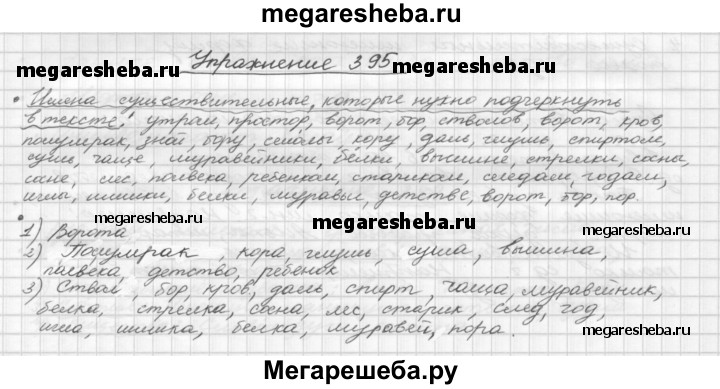 megaresheba.ru
Упражнение 395
megaresheba.ru megaresheba.ru
• Имена существительные, которые нужно подчеркнуть
в тексте: утрам, простор, ворот, бор, стволов, ворот, кров,
полумрак, зной, бору, смолы, кору, даль, глушь, спиртом,
сушь, чаще, муравейники, белки, вышине, стрелки, сосны,
сосне, лес, полвека, ребенком, стариком, следаем, годаем,
иглы, шишки, белки, муравьи, детстве, ворот, бор, пор.
megaresheba.ru megaresheba.ru megaresheba.ru
1) Ворота
2) Полумрак, кора, глушь, суша, вышина,
полвека, детство, ребенок
3) Ствол, бор, кров, даль, спирт, чаща, муравейник,
белка, стрелка, сосна, лес, старик, след, год,
игла, шишка, белка, муравей, пора.
megaresheba.ru
Мегарешеба.ру